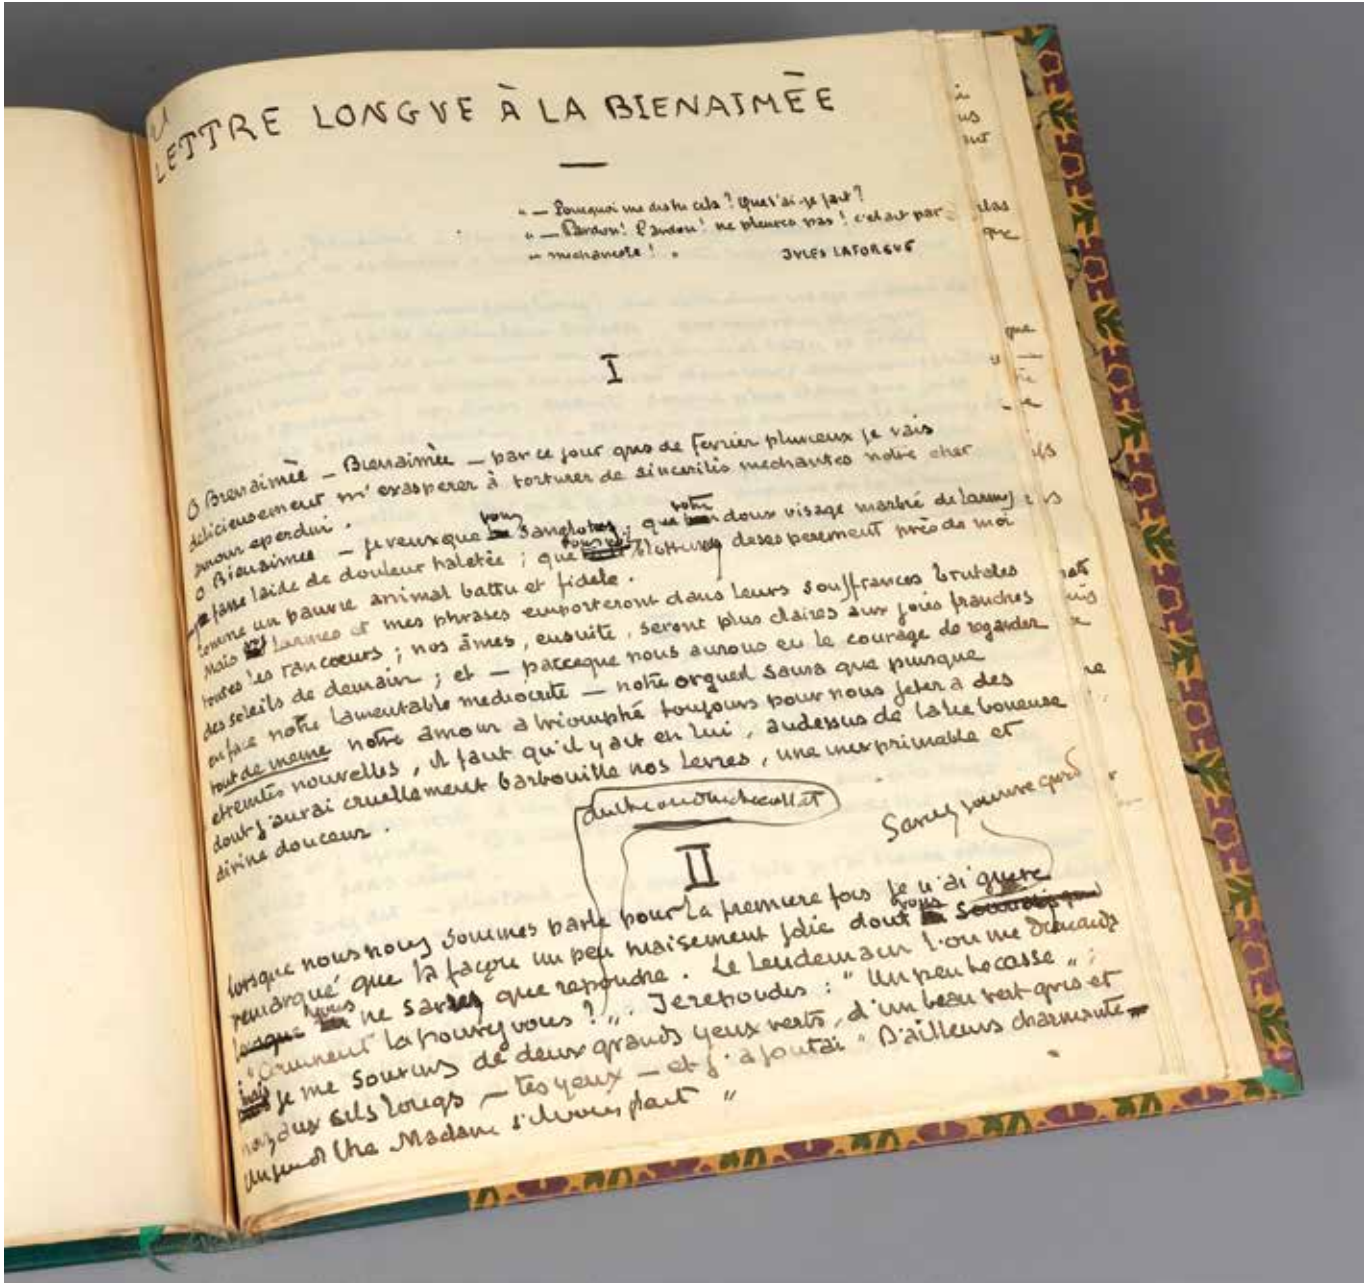 LETTRE LONGVE À LA BIENAIMÉE
" — Pourquoi me dis tu cela ? Que t'ai-je fait ?
" — Pardon ! Pardon ! ne pleurez pas ! c'etait par
" mechanceté ! "
JVLES LAFORGVE
I
Ô Bienaimée — Bienaimée — par ce jour gris de fevrier pluvieux je vais
delicieusement m'exasperer à torturer de sincerités mechantes notre cher
amour eperdu.
O Bienaimée — je veux que vous sanglotiez ; que votre doux visage marbré de larmes
se fasse laide de douleur haletée ; que vous vous blottissiez desesperement près de moi
comme un pauvre animal battu et fidele.
Mais larmes et mes phrases emporteront dans leurs souffrances brutales
toutes les rancoeurs ; nos âmes, ensuite, seront plus claires aux joies franches
des soleils de demain ; et — parceque nous aurons eu le courage de regarder
en face notre lamentable mediocrité — notre orgueil saura que puisque
tout de meme notre amour a triomphé toujours pour nous jeter a des
etreintes nouvelles, il faut qu'il y ait en lui, audessus de la lie boueuse
dont j'aurai cruellement barbouillé nos levres, une inexprimable et
divine douceur.
II
Lorsque nous nous sommes parlé pour la premiere fois je n'ai guere
remarqué que la façon un peu niaisement jolie dont vous
ne que repondre. Le lendemain l'on me demanda
"Comment la trouvez vous ?". Je repondis : "Un peu becasse" ;
mais je me souvins de deux grands yeux verts, d'un beau vert gris et
aux cils longs — tes yeux — et j'ajoutai "D'ailleurs charmante
Madame s'il vous plait "